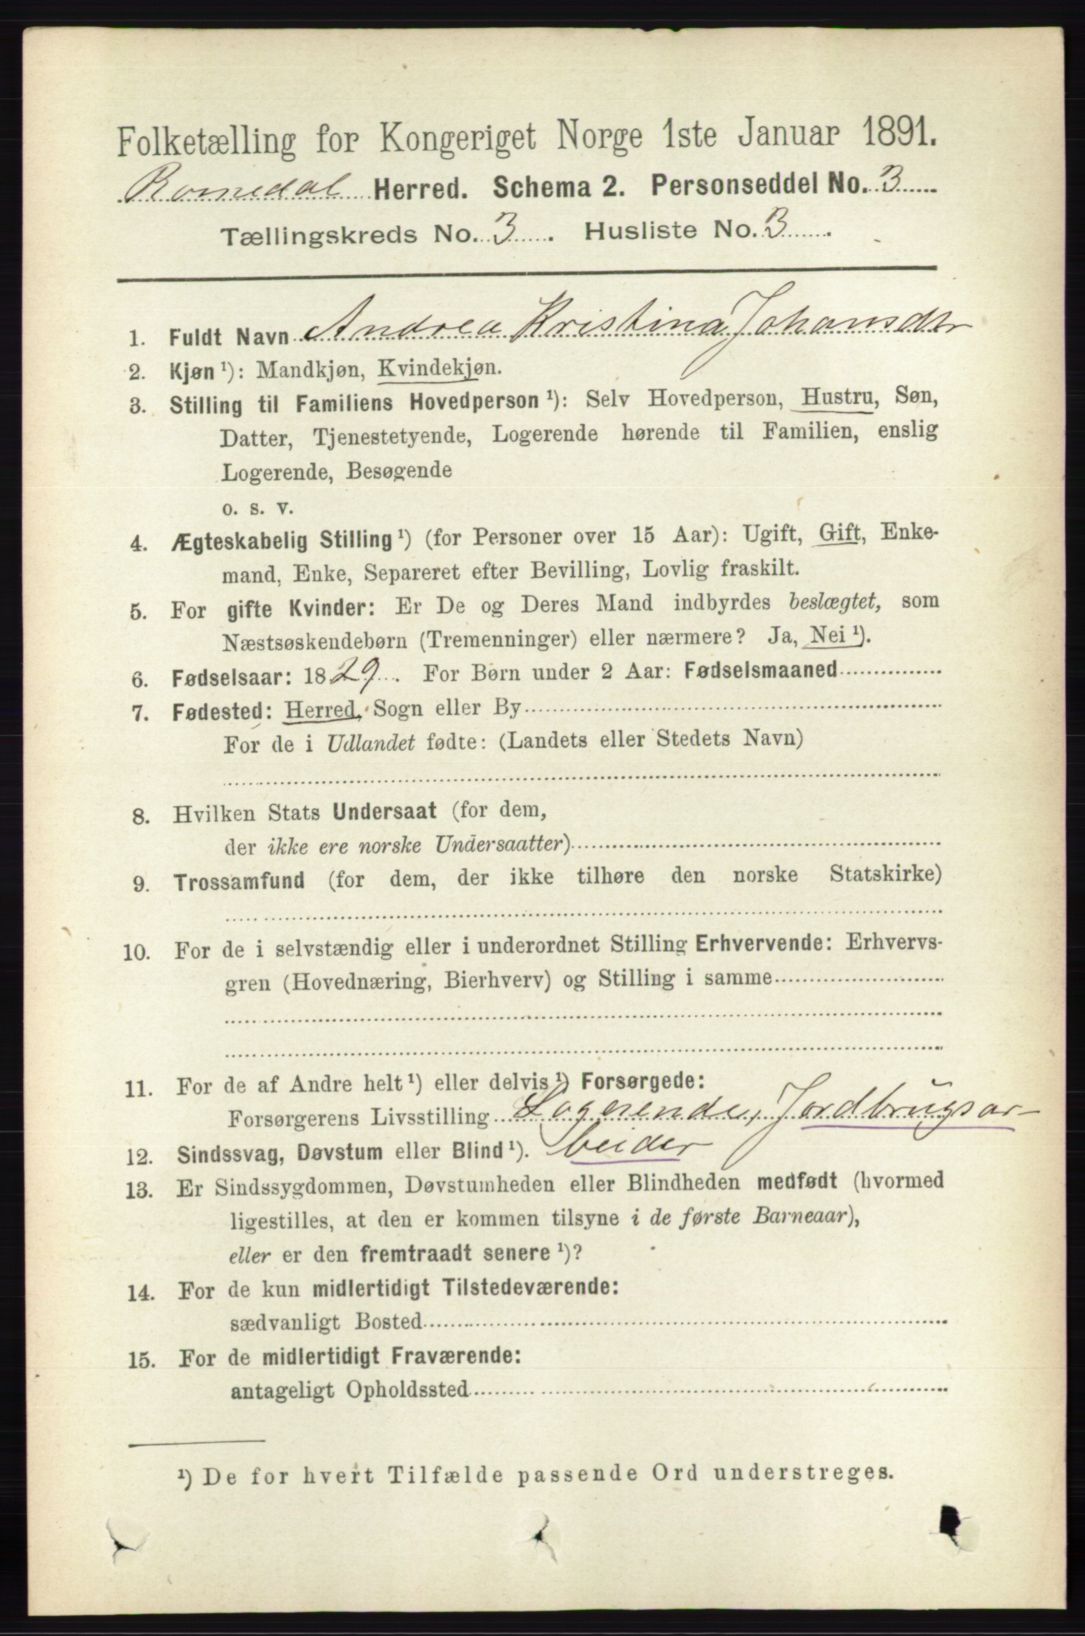 Folketælling for Kongeriget Norge 1ste Januar 1891.
Romedal Herred. Schema 2. Personseddel No. 3
Tællingskreds No. 3. Husliste No. 3.
1. Fuldt Navn Andrea Kristina Johansdtr
2. Kjøn ¹): Mandkjøn, Kvindekjøn.
3. Stilling til Familiens Hovedperson ¹): Selv Hovedperson, Hustru, Søn,
Datter, Tjenestetyende, Logerende hørende til Familien, enslig
Logerende, Besøgende
o. s. v.
4. Ægteskabelig Stilling ¹) (for Personer over 15 Aar): Ugift, Gift, Enke-
mand, Enke, Separeret efter Bevilling, Lovlig fraskilt.
5. For gifte Kvinder: Er De og Deres Mand indbyrdes beslægtet, som
Næstsøskendebørn (Tremenninger) eller nærmere? Ja, Nei ¹).
6. Fødselsaar: 1829. For Børn under 2 Aar: Fødselsmaaned
7. Fødested: Herred, Sogn eller By
For de i Udlandet fødte: (Landets eller Stedets Navn)
8. Hvilken Stats Undersaat (for dem,
der ikke ere norske Undersaatter)
9. Trossamfund (for dem, der ikke tilhøre den norske Statskirke)
10. For de i selvstændig eller i underordnet Stilling Erhvervende: Erhvervs-
gren (Hovednæring, Bierhverv) og Stilling i samme
11. For de af Andre helt ¹) eller delvis ¹) Forsørgede:
Forsørgerens Livsstilling Logerende, Jordbrugsar-
12. Sindssvag, Døvstum eller Blind ¹). beider
13. Er Sindssygdommen, Døvstumheden eller Blindheden medfødt (hvormed
ligestilles, at den er kommen tilsyne i de første Barneaar),
eller er den fremtraadt senere ¹)?
14. For de kun midlertidigt Tilstedeværende:
sædvanligt Bosted
15. For de midlertidigt Fraværende:
antageligt Opholdssted
¹) De for hvert Tilfælde passende Ord understreges.